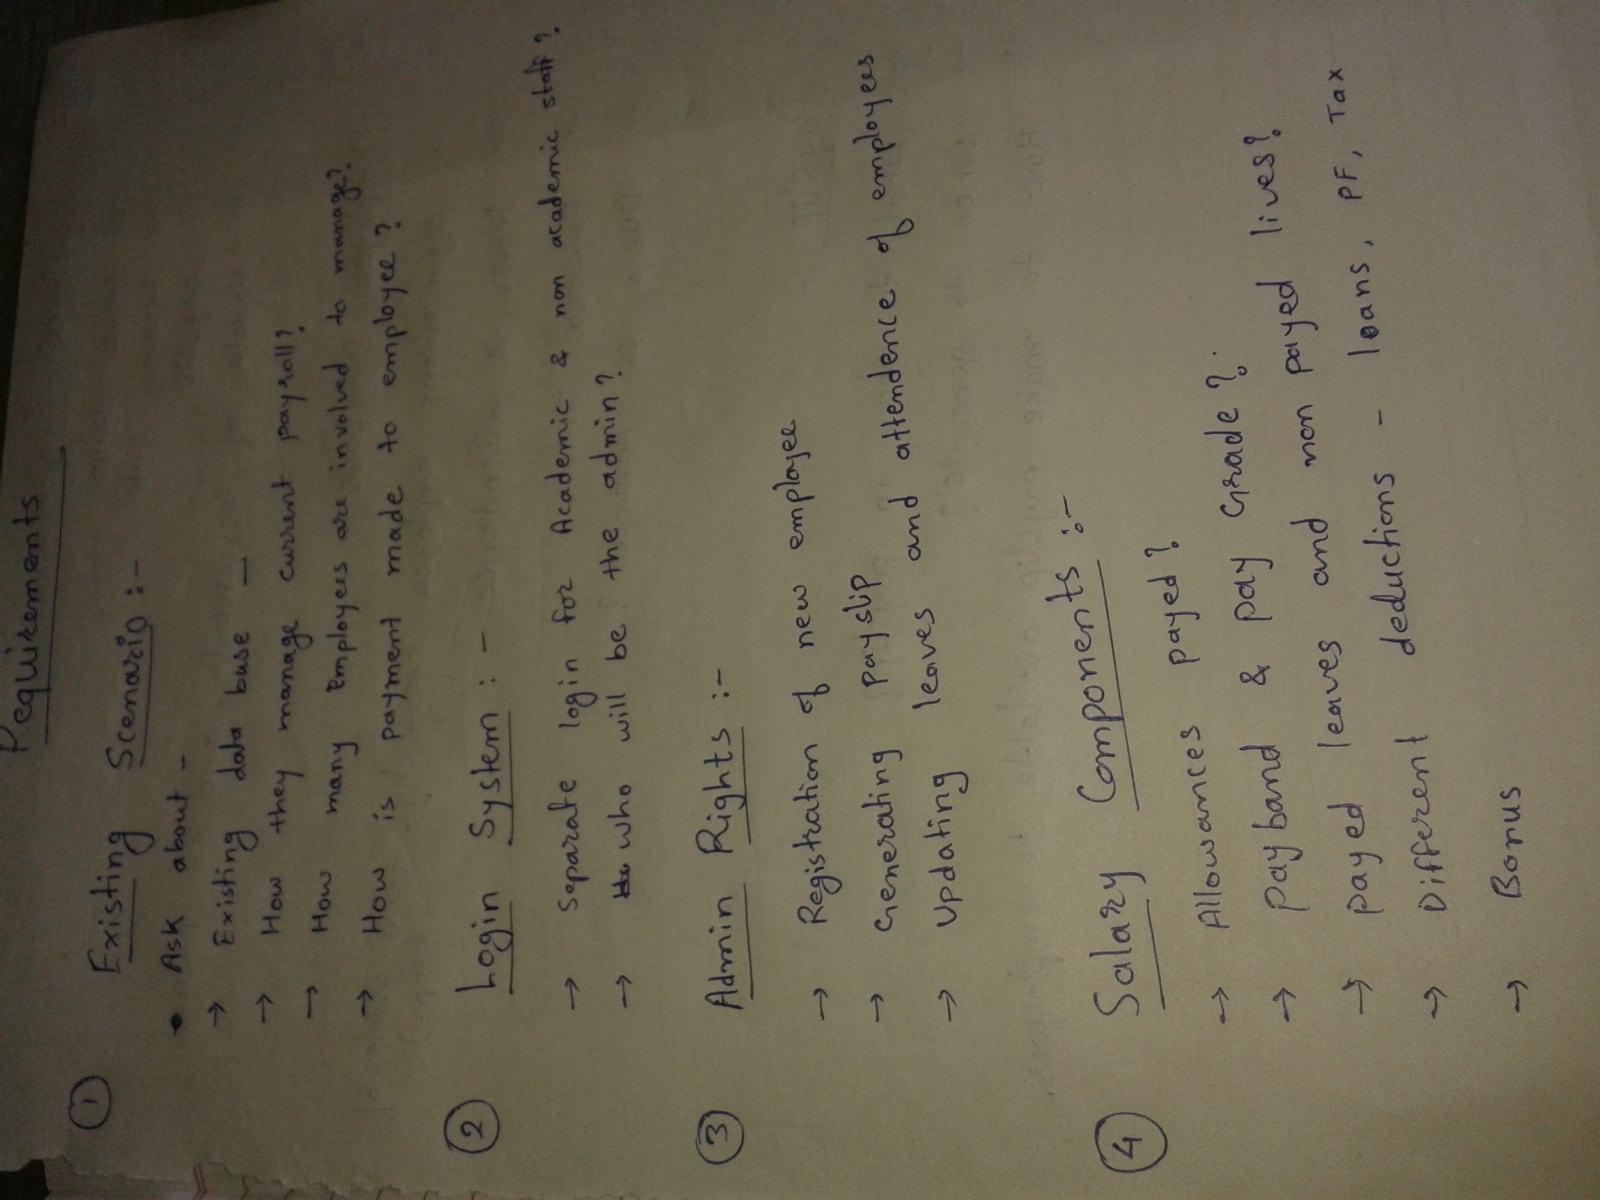 Requirements
1
Existing Scenario :-
• Ask about -
→ Existing data base -
→ How they manage current payroll?
→ How many Employees are involved to manage?
→ How is payment made to employee?
2
Login System : -
→ Separate login for Academic & non academic staff?
→ who will be the admin?
3
Admin Rights :-
→ Registration of new employee
→ Generating payslip
→ Updating leaves and attendence of employees
4
Salary Components :-
→ Allowances payed?
→ Payband & pay Grade?
→ payed leaves and non payed lives?
→ Different deductions - loans, PF, Tax
→ Bonus